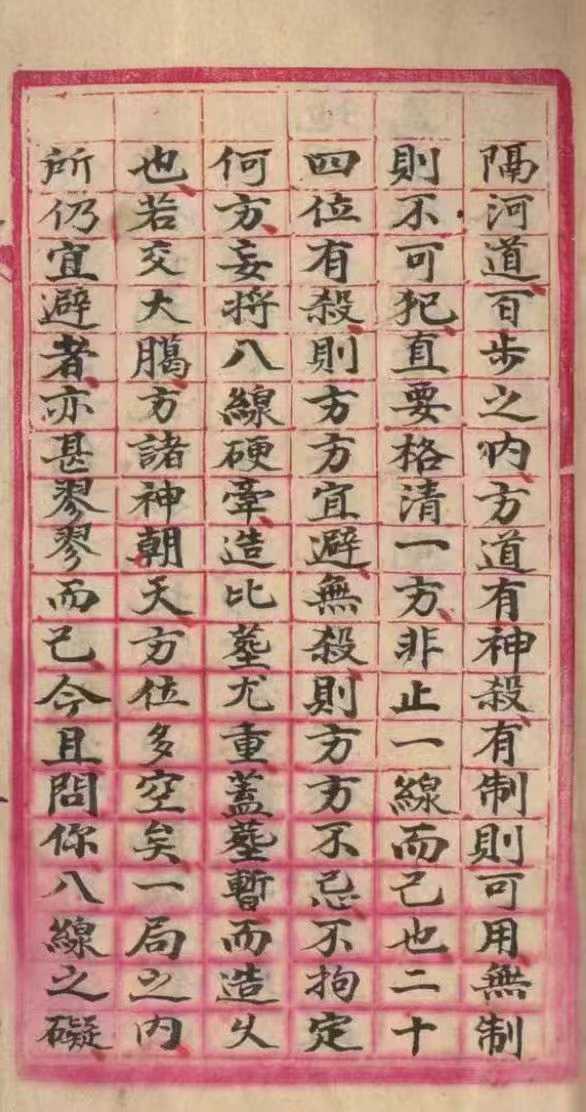 隔河道百步之内方道有神殺有制則可用無制
則不可犯直要格清一方非止一線而已也二十
四位有殺則方方宜避無殺則方方不忌不拘定
何方妄將八線硬牽造比塟尤重蓋塟暫而造久
也若交大臈方諸神朝天方位多空矣一局之内
所仍宜避者亦甚翏翏而己今且問你八線之礙